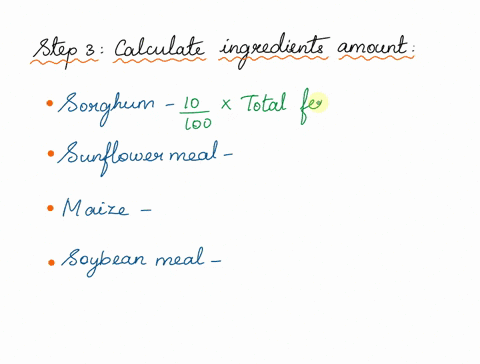 Step 3: Calculate ingredients amount:
• Sorghum - 10/100 × Total fe
• Sunflower meal -
• Maize -
• Soybean meal -